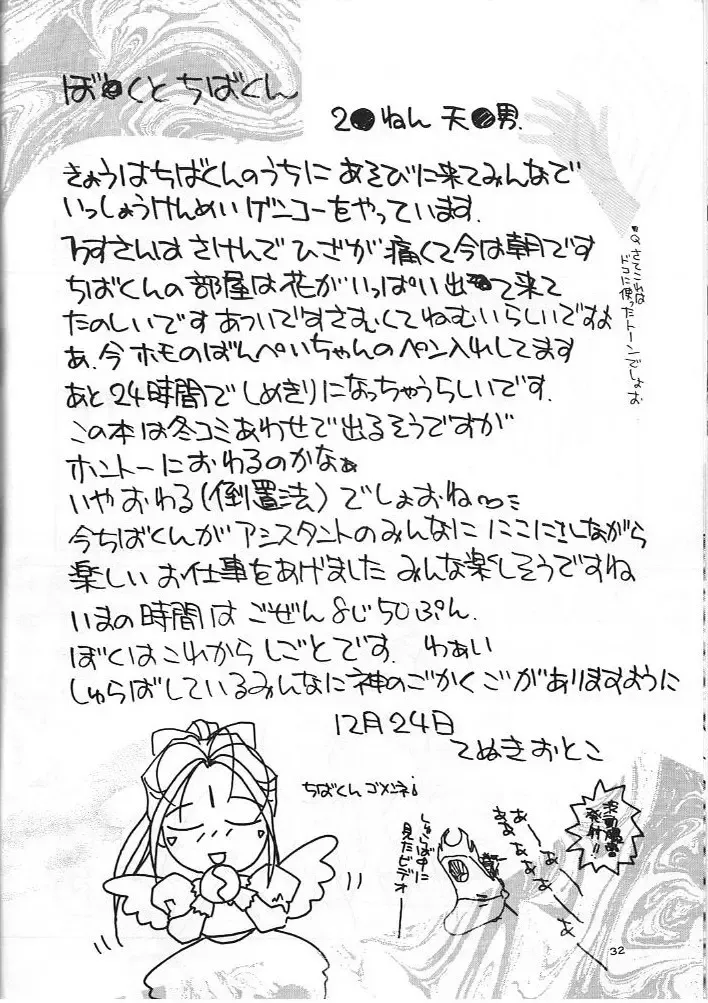 ぼ●くとちばくん
2●ねん 天●男.
きょうはちばくんのうちに あそびに来てみんなで
いっしょうけんめい ゲンコーをやっています.
さんは さけんで ひざが 痛くて今は朝です
ちばくんの部屋は花がいっぱい出て来て
たのしいです あついですさむくてねむいらしいですよ
あ、今 ホモのばんぺいちゃんのペン入れしてます
あと24時間でしめきりになっちゃうらしいです.
この本は冬コミあわせで出るそうですが
ホントーにおわるのかなぁ
いやおわる(倒置法)でしょおね
今ちばくんがアシスタントのみんなに にこにこしながら
楽しい お仕事をあげました みんな楽しそうですね
いまの時間は ごぜん8じ50ぷん.
ぼくはこれから しごとです. わぁい
しゅらばしているみんなに神のごかくごがありますように
12月24日
てぬきおとこ
Qさてこれは
ドコに使ったトーンでしょお
ちばくんゴメンネ!
しゅらば中に
見たビデオー
あーー
ああああああ
発射!!
32